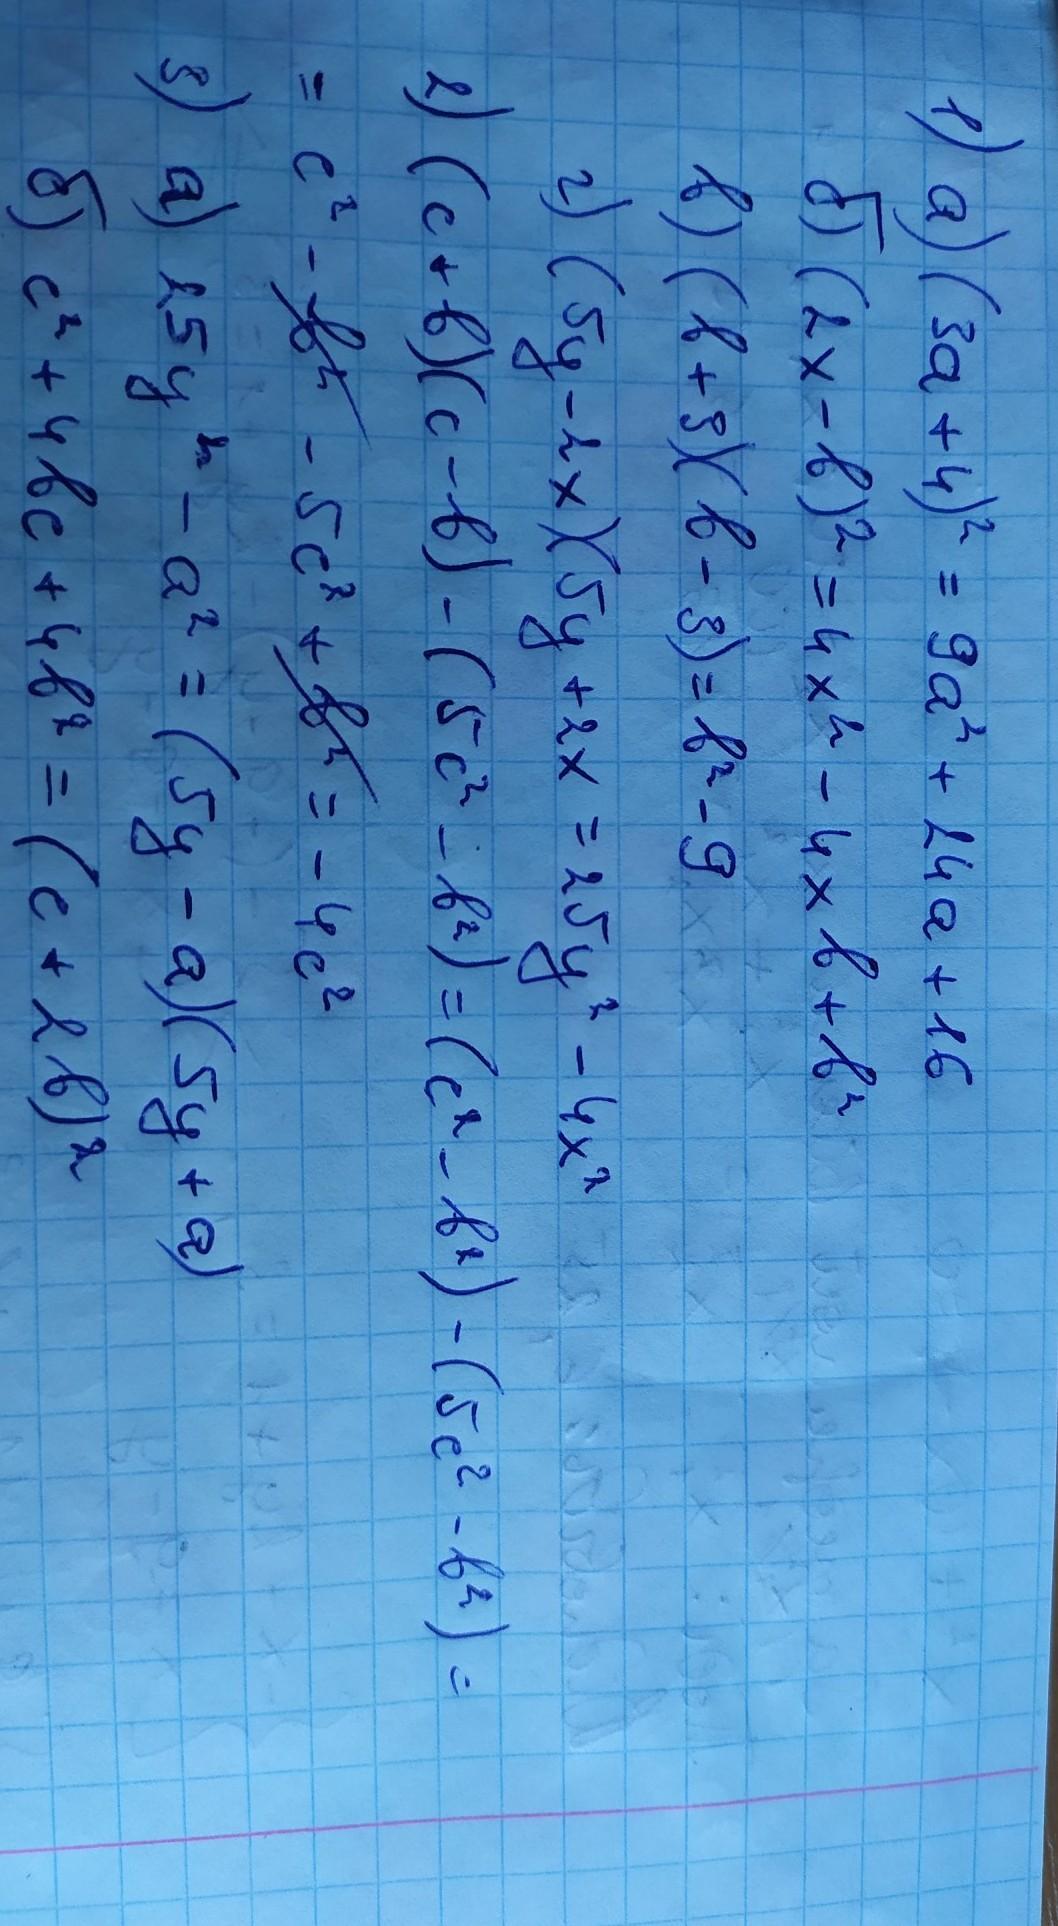 1) а) (3a + 4)² = 9a² + 24a + 16
б) (2x - b)² = 4x² - 4xb + b²
в) (b + 3)(b - 3) = b² - 9
г) (5y - 2x)(5y + 2x = 25y² - 4x²
2) (c + b)(c - b) - (5c² - b²) = (c² - b²) - (5c² - b²) =
= c² - b² - 5c² + b² = - 4c²
3) а) 25y² - a² = (5y - a)(5y + a)
б) c² + 4bc + 4b² = (c + 2b)²